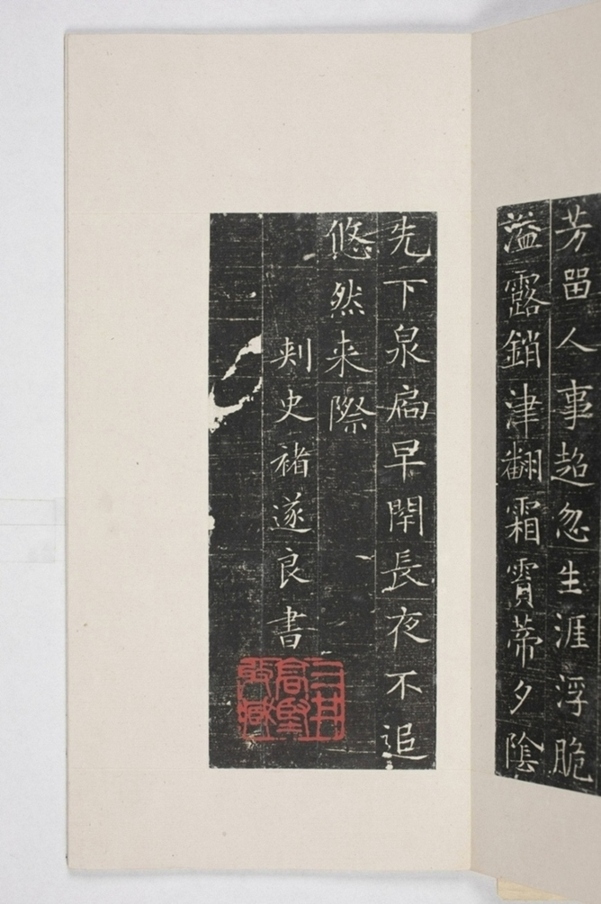 芳㽞人事超忽生涯浮脆
溘露銷津翻霜霣蒂夕陰
先下泉扃早閇長夜不追
悠然来際
刾史褚遂良書
三井
高堅